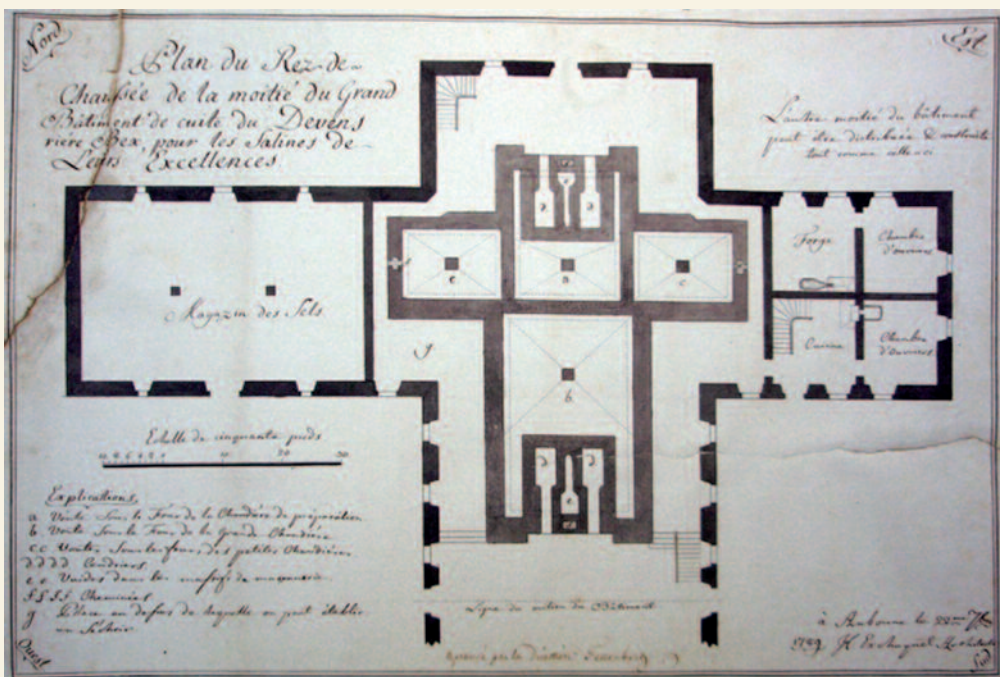 Nord
Est
Plan du Rez-de-
Chaussée de la moitié du Grand
Bâtiment de cuite du Devens
rière Bex, pour les Salines de
Leurs Excellences.
L'autre moitié du bâtiment
peut être distribuée & construite
tout comme celle ci
Forge
Chambre
d'ouvriers
Cuisine
Chambre
d'ouvriers
Magazin des Sels.
a
b
c
c
d
d
d
d
e
g
Echelle de cinquante pieds
Explications,
a Voute Sous le Fond de la Chaudière de préparation
b Voute Sous le Fond de la Grande Chaudière
cc Voutes Sous les fonds des petites Chaudières
dddd Cendriers
e e Vuides dans les massifs de maçonnerie
ff.ff. Cheminées
g Place au dessus de laquelle on peut établir
un Séchoir
Ligne du milieu du Bâtiment
à Aubonne le 22me 7bre
1789 Exchaquet Architecte
Ouest
Sud